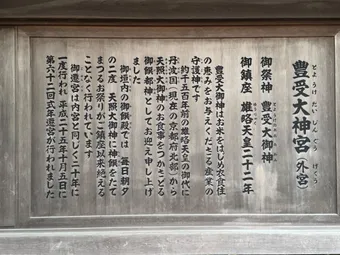 豊受大神宮（外宮）
とようけだいじんぐう　げくう
御祭神　豊受大御神
御鎮座　雄略天皇二十二年
豊受大御神はお米をはじめ衣食住
の恵みをお与えくださる産業の
守護神です
約千五百年前の雄略天皇の御代に
丹波国（現在の京都府北部）から
天照大御神のお食事をつかさどる
御饌都神としてお迎え申し上げ
ました
御垣内の御饌殿では毎日朝夕
の二度　天照大御神に神饌をたて
まつるお祭りがご鎮座以来絶える
ことなく行われています
御遷宮は内宮と同じく二十年に
一度行われ　平成二十五年十月五日に
第六十二回式年遷宮が行われました